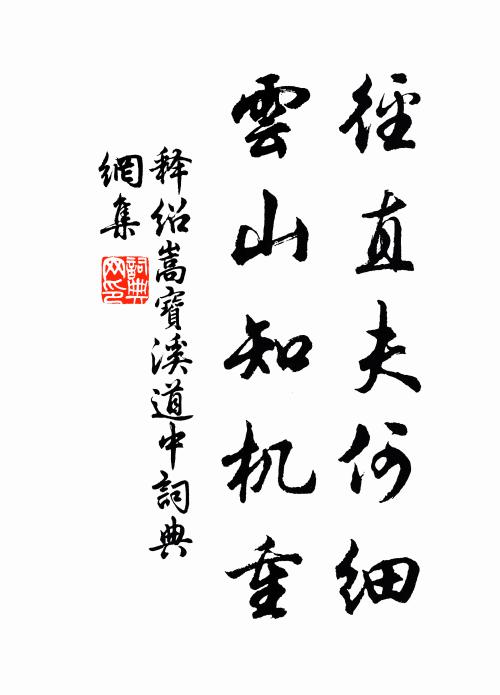 徑直夫何細
雲山知机重
释绍嵩寶溪道中詞典
網集
詞典
网印